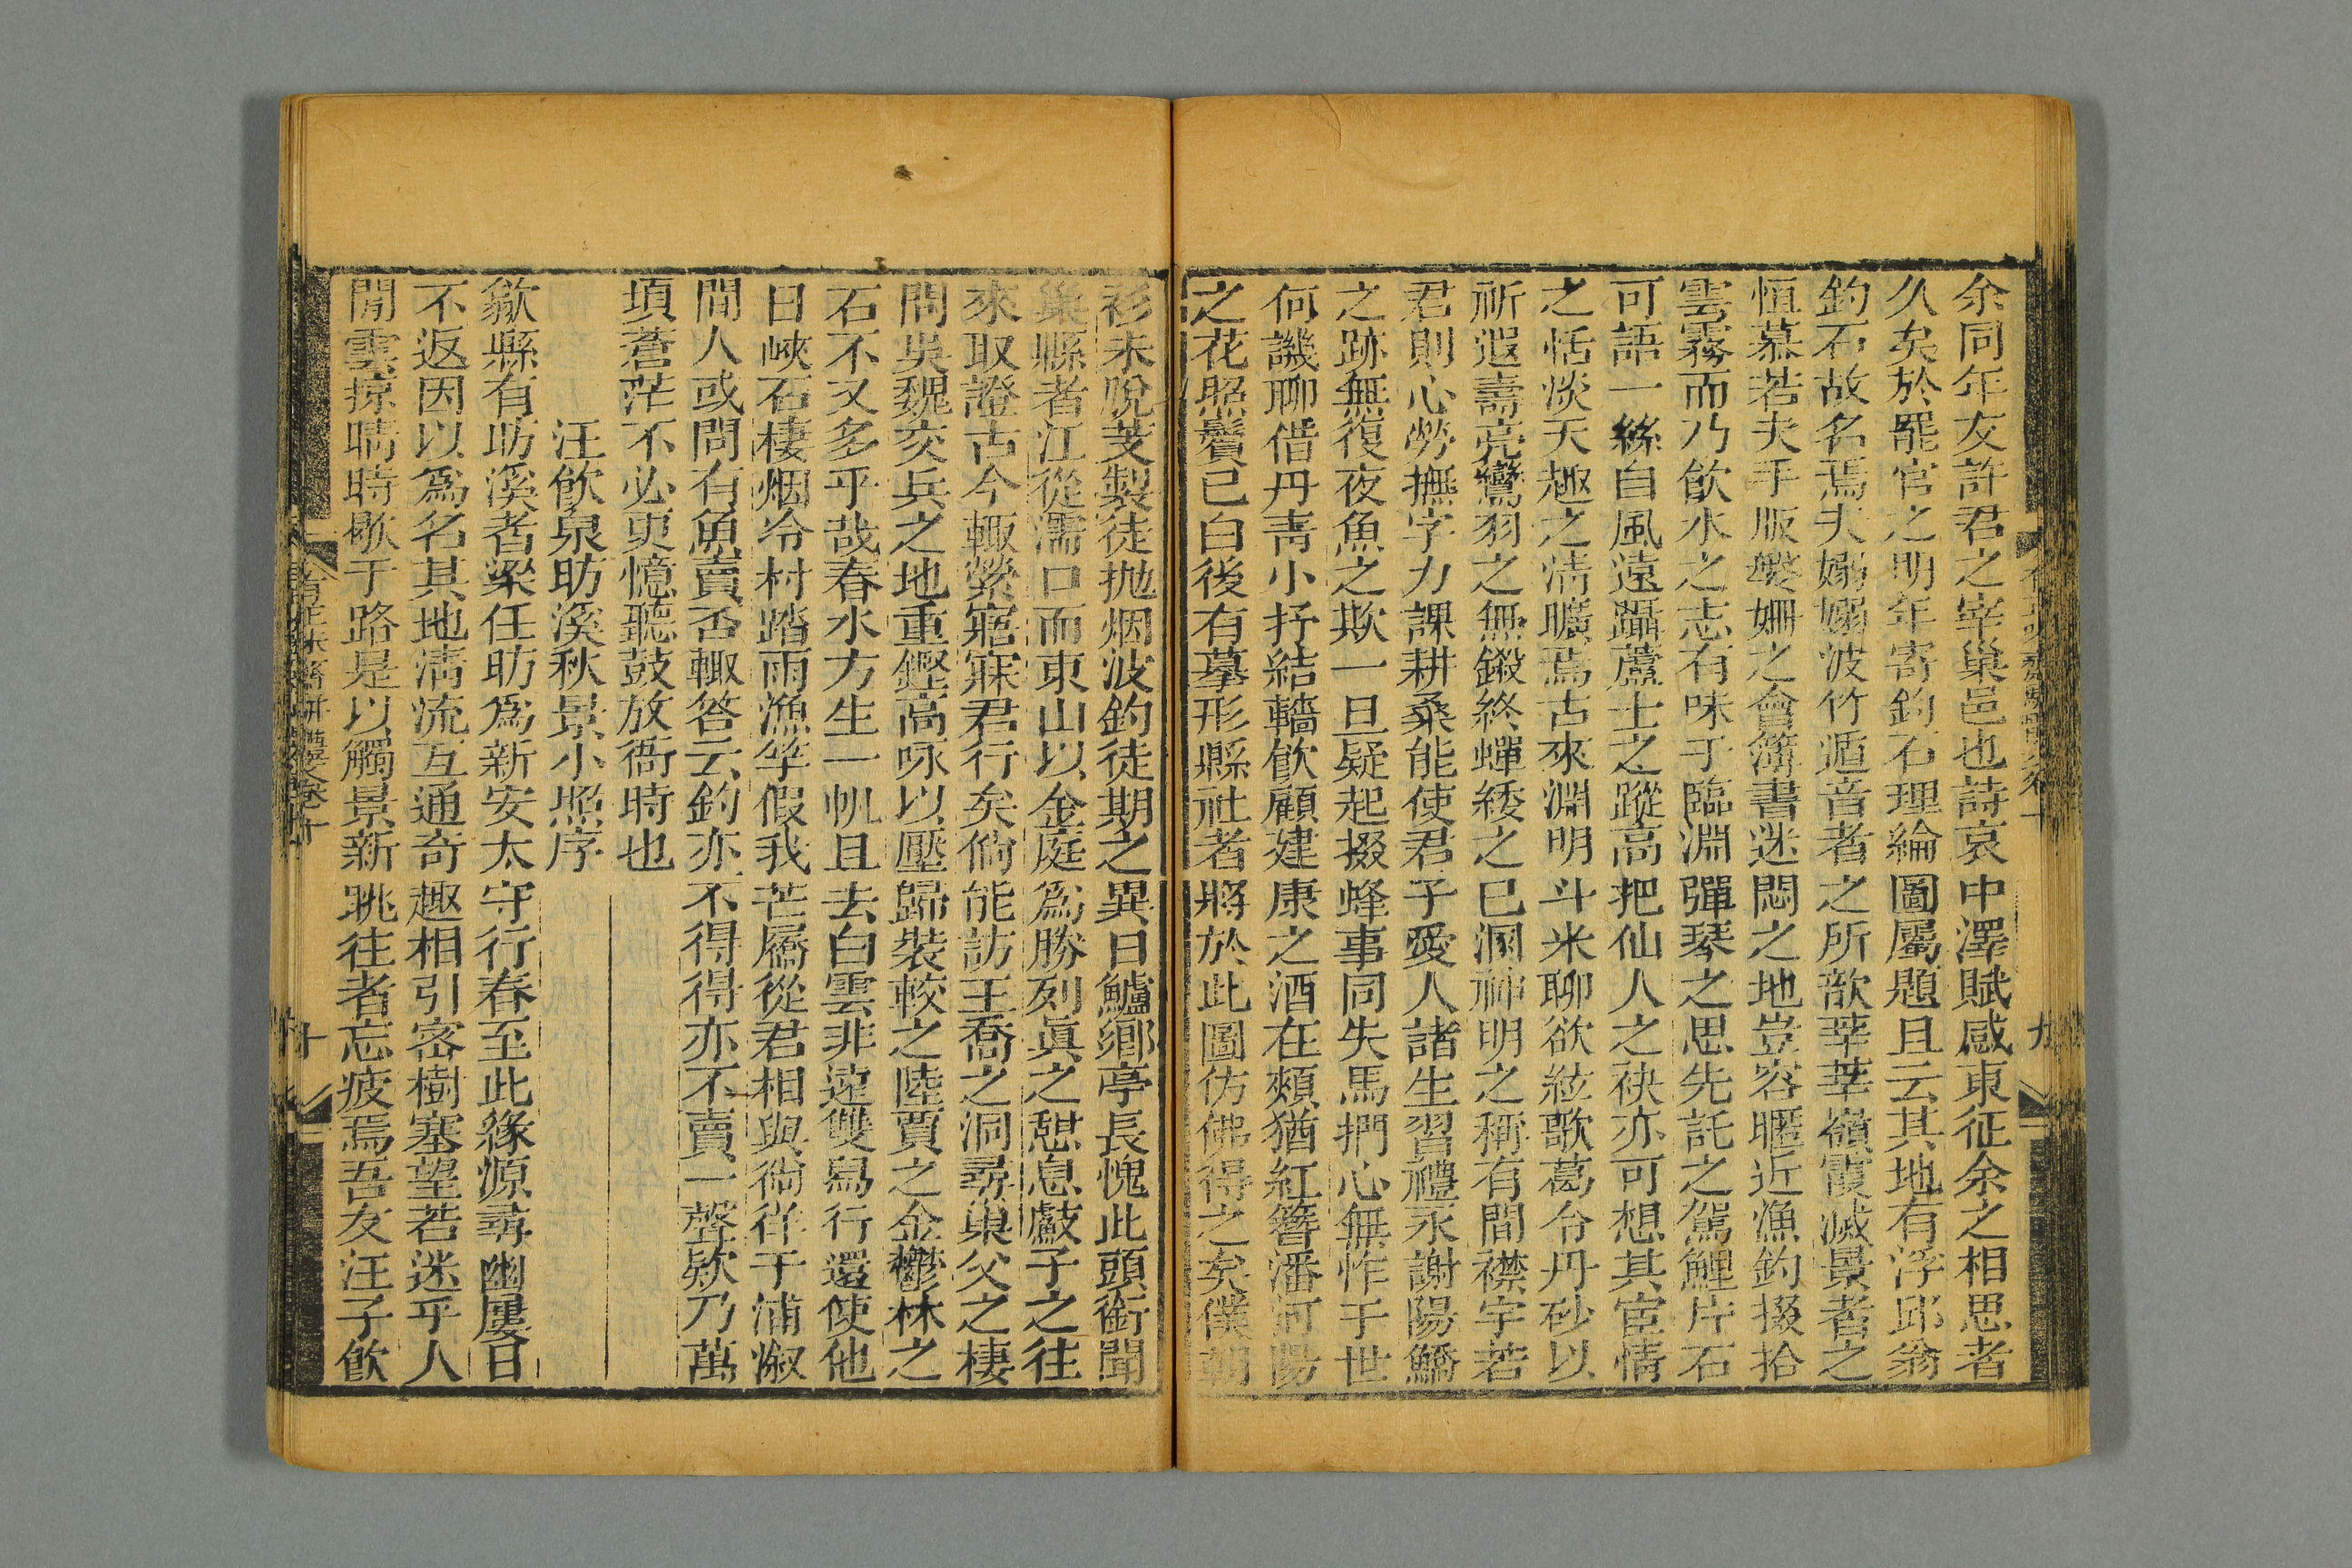 余同年友許君之宰巢邑也詩哀中澤賦感東征余之相思者
久矣於罷官之明年寄釣石理綸圖屬題且云其地有浮邱翁
釣石故名焉夫嫋嫋波竹遁音者之所歆莘莘嶺霞滅景者之
恒慕若夫手版媻姍之會簿書迷悶之地豈容暱近漁釣掇拾
雲霧而乃飲水之志有味于臨淵彈琴之思先託之駕鯉片石
可語一絲自風遠躡蘆士之蹤高把仙人之袂亦可想其宦情
之恬淡天趣之清曠焉古來淵明斗米聊欲絃歌葛令丹砂以
祈遐壽亮鸞羽之無鎩終蟬緌之已溷神明之稱有間襟宇若
君則心勞撫字力課耕桑能使君子愛人諸生習禮永謝陽鱎
之跡無復夜魚之欺一旦疑起掇蜂事同失馬捫心無怍于世
何譏聊借丹青小抒結轖飲顧建康之酒在頰猶紅簪潘河陽
之花照鬢已白後有摹形縣社者將於此圖仿佛得之矣僕朝
衫未脫芰製徒拋烟波釣徒期之異日鱸鄉亭長愧此頭銜聞
巢縣者江從濡口而東山以金庭為勝列真之憩息獻子之往
來取證古今輒縈寤寐君行矣倘能訪王喬之洞尋巢父之棲
問吳魏交兵之地重鏗高咏以壓歸裝較之陸賈之金鬱林之
石不又多乎哉春水方生一帆且去白雲非遠雙舄行還使他
日峽石棲烟泠村踏雨漁竿假我芒屩從君相與徜徉于浦漵
間人或問有魚賣否輒答云釣亦不得得亦不賣一聲欵乃萬
頃蒼茫不必更憶聽鼓放衙時也
汪飲泉昉溪秋景小照序
歙縣有昉溪者梁任昉為新安太守行春至此緣源尋幽屢日
不返因以為名其地清流互通奇趣相引密樹塞望若迷乎人
間雲掠晴時歇于路是以觸景新眺往者忘疲焉吾友汪子飲
九
十